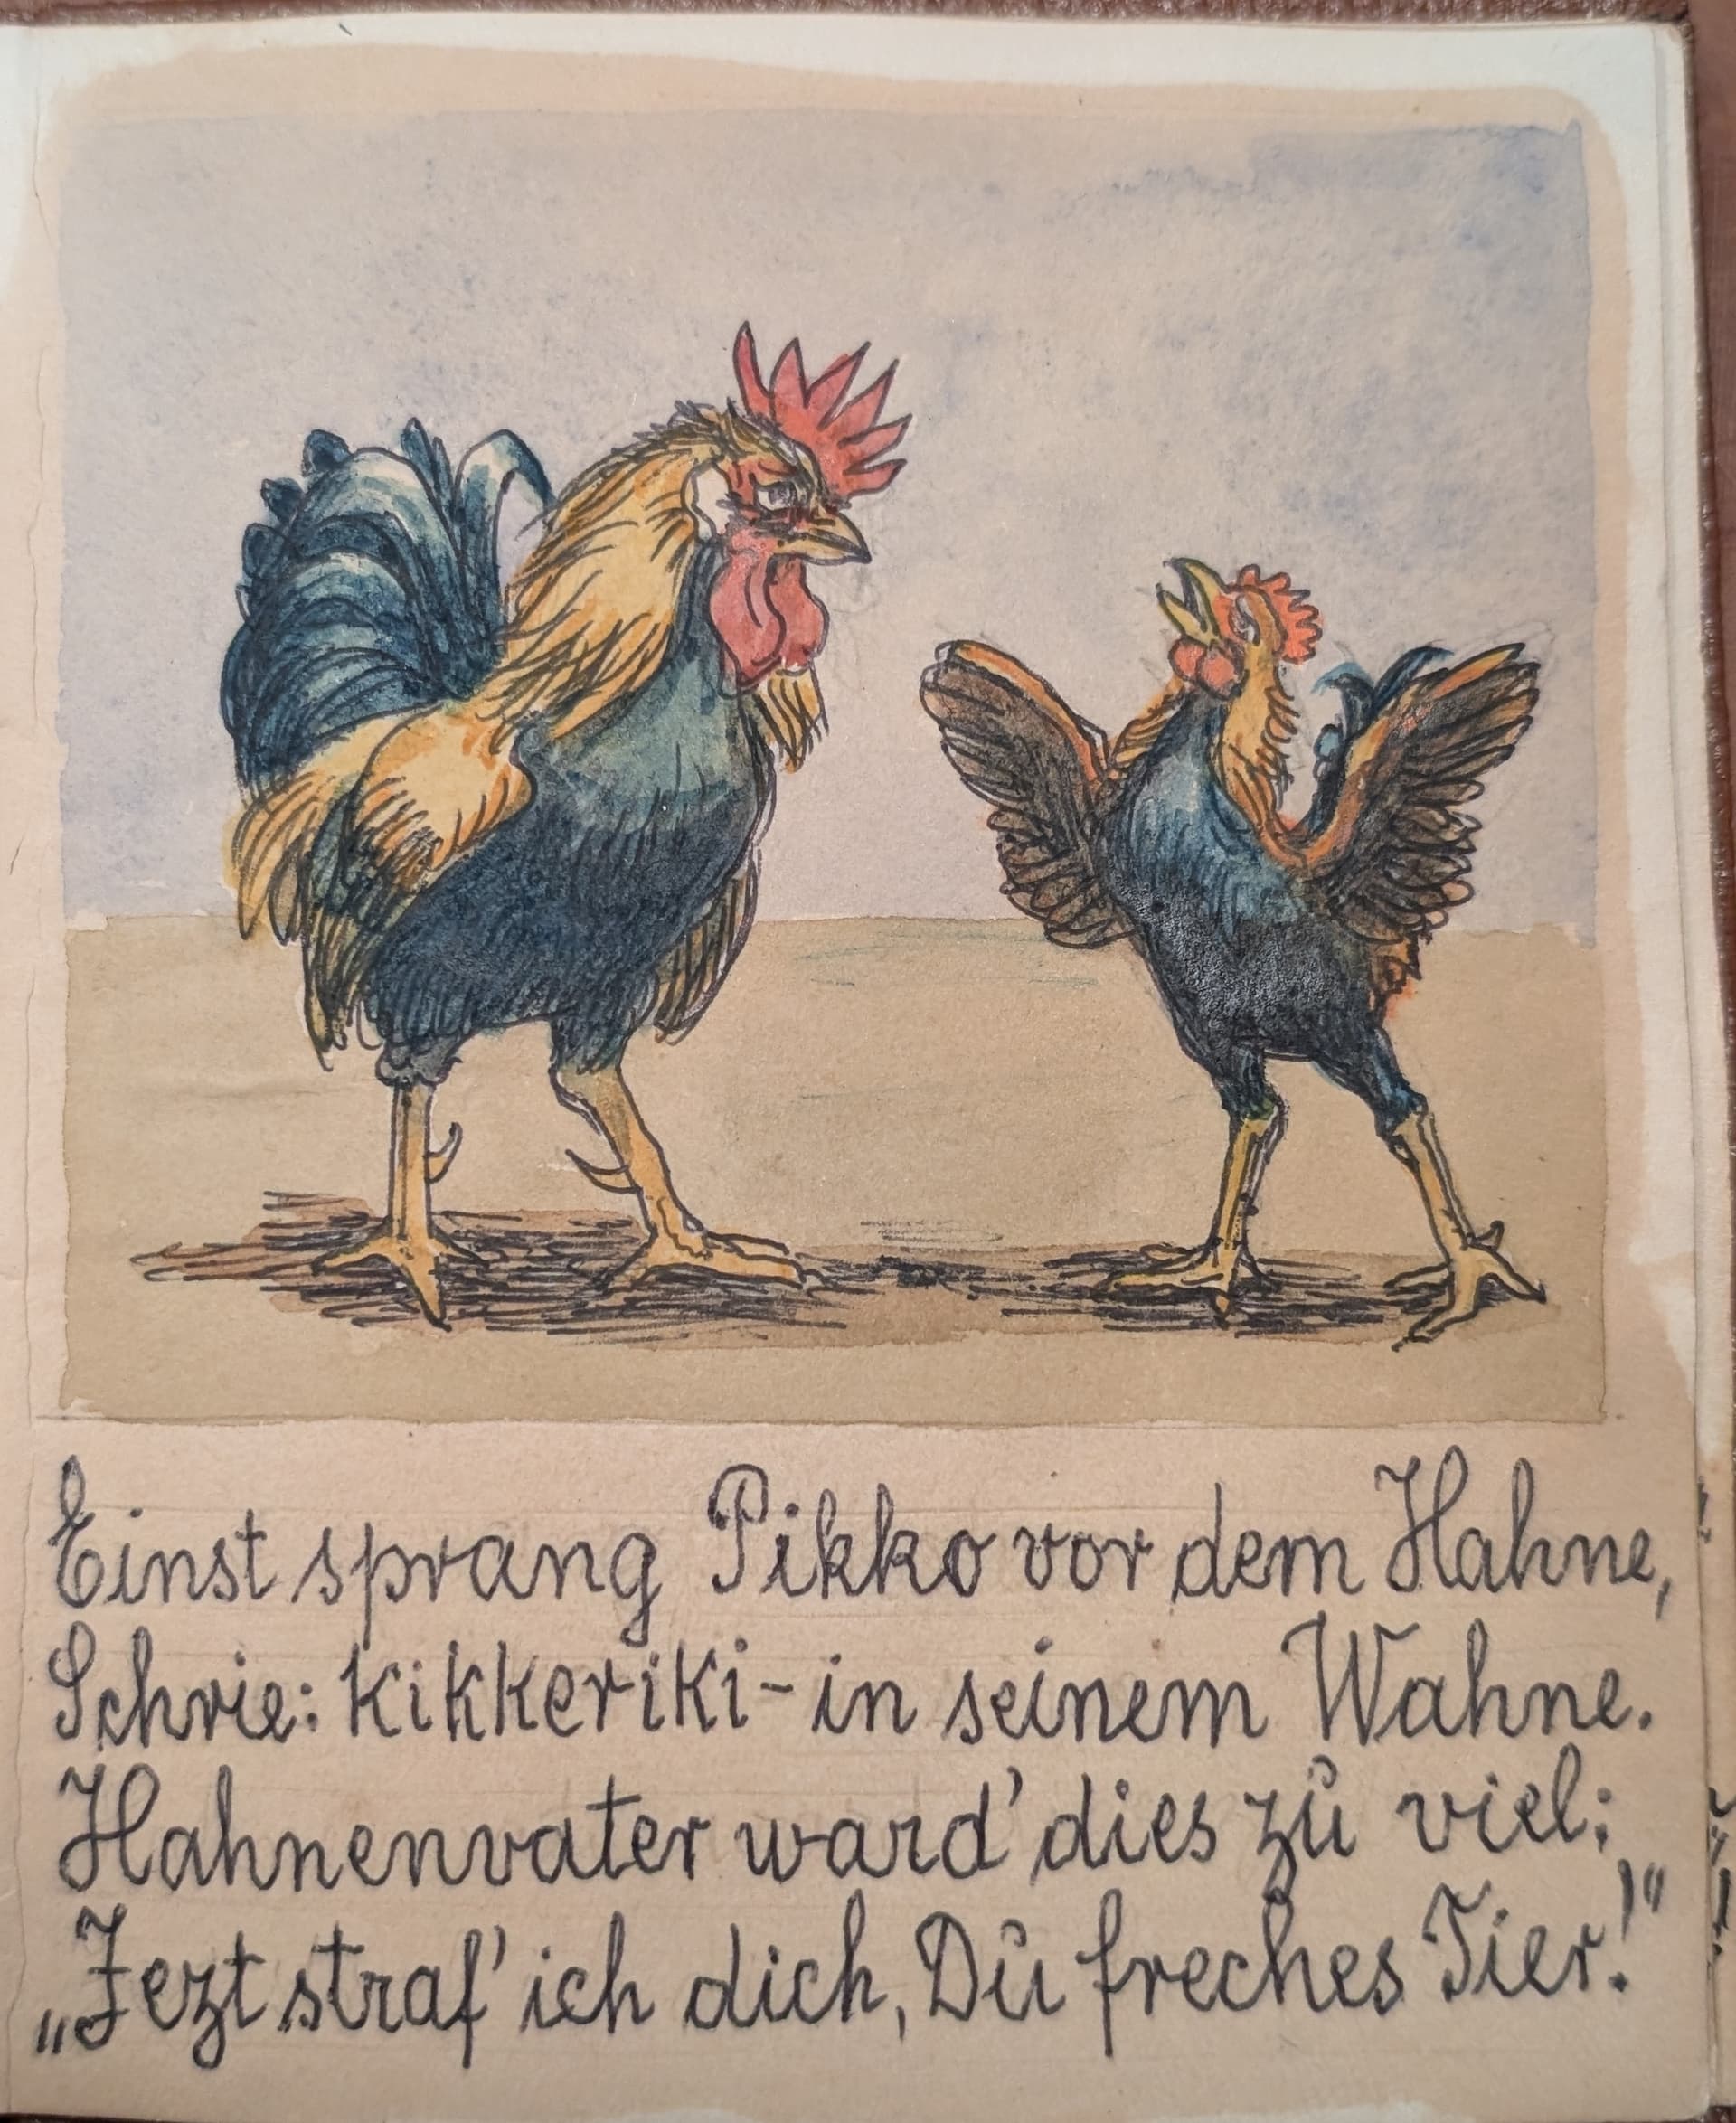 Einst sprang Pikko vor dem Hahne,
Schrie: kikkeriki - in seinem Wahne.
Hahnenvater ward' dies zu viel:
„Jezt straf' ich dich, Du freches Tier!"